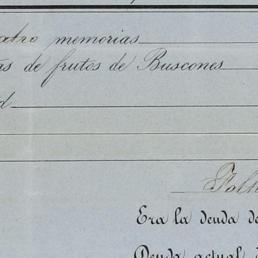 atro memorias
as de frutos de Buscones
d
Era la deuda de
Deuda actual d